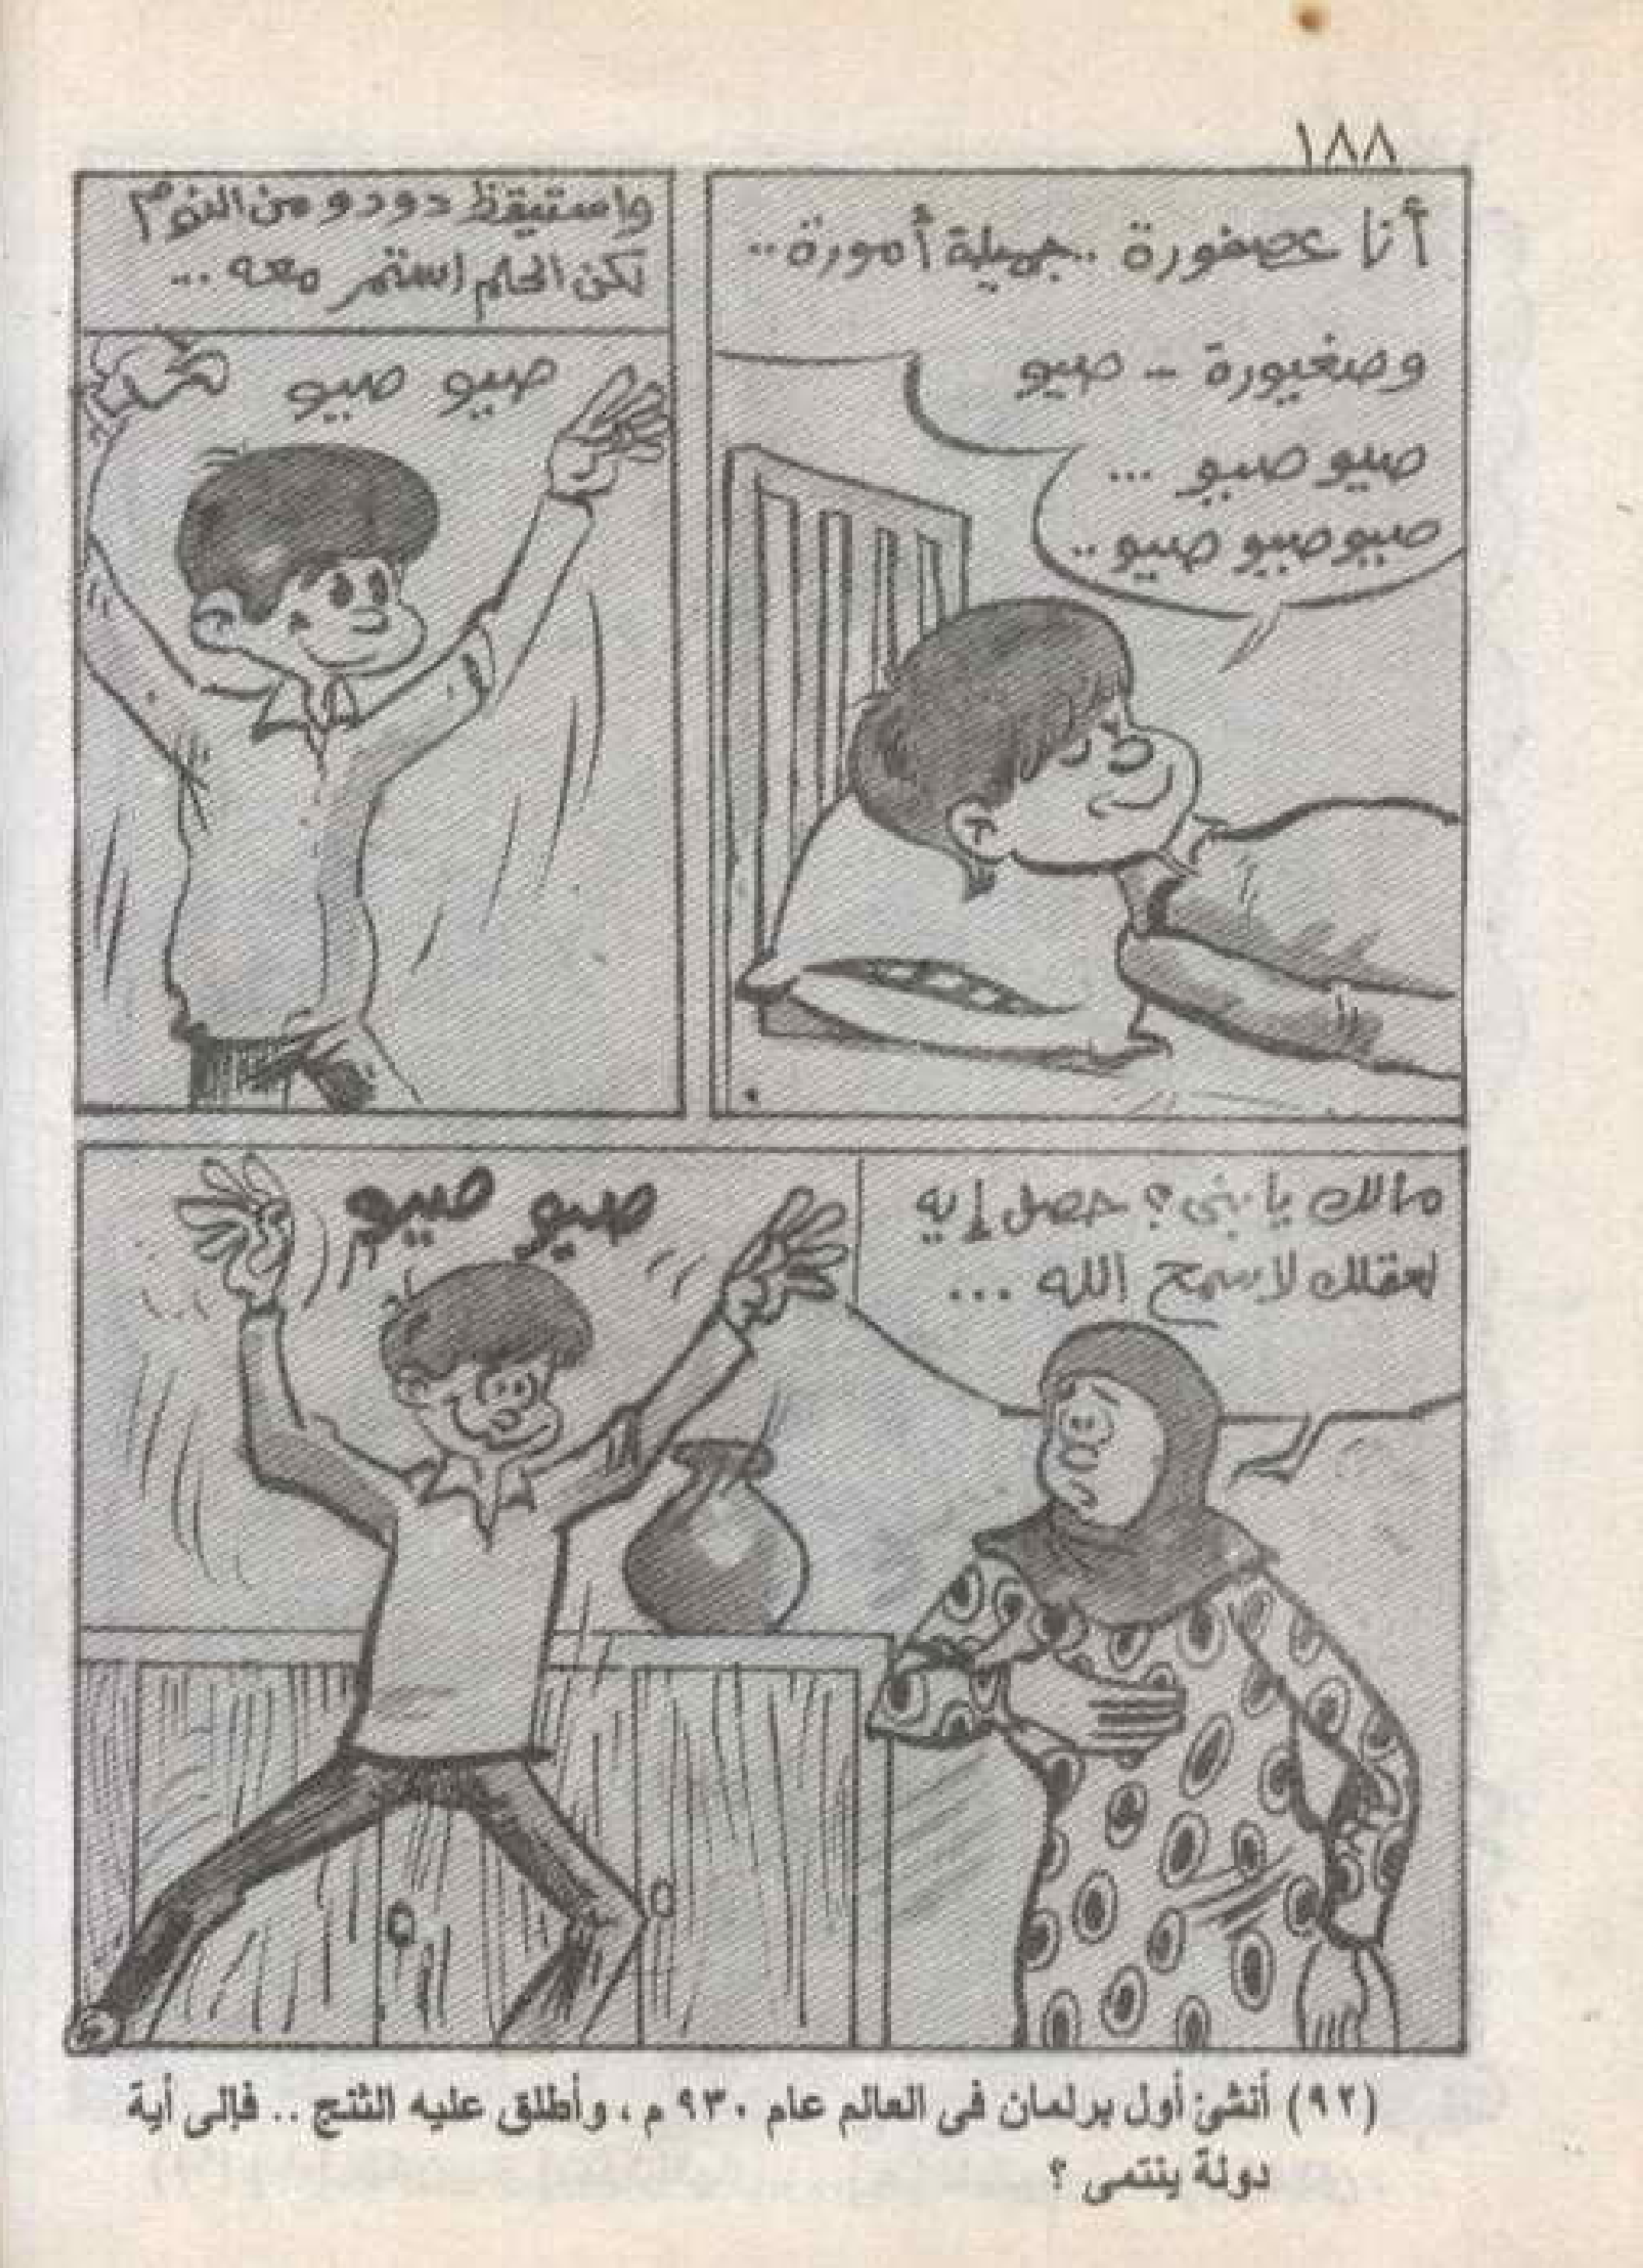 ١٨٨
أنا عصفورة .. جميلة أمورة ..
وصغيورة -- صيو
صيو صيو ...
صيو صيو صيو ..
واستيقظ دودو من النوم
لكن الحلم استمر معه ...
صيو صيو
مالك يا بنى ؟ حصل إيه
لعقلك لا سمح الله ...
صيو صيو
(٩٢) أنشئ أول برلمان فى العالم عام ٩٣٠ م ، وأطلق عليه الثنج .. فإلى أية
دولة ينتمى ؟